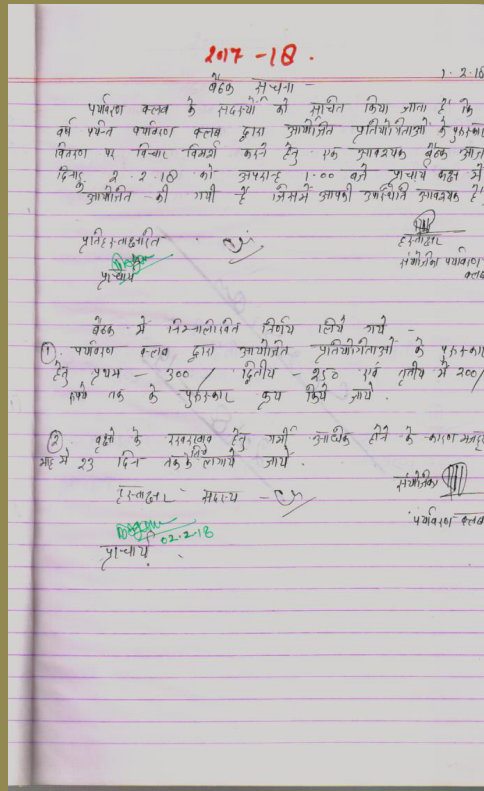 2017-18.
1.2.18
बैठक सूचना -
पर्यावरण क्लब के सदस्यों को सूचित किया जाता है कि
वर्ष पर्यन्त पर्यावरण क्लब द्वारा आयोजित प्रतियोगिताओं के पुरुस्कार
वितरण पर विचार विमर्श करने हेतु एक आवश्यक बैठक आज
दिनांक 2.2.18 को अपरान्ह 1.00 बजे प्राचार्य कक्ष में
आयोजित की गयी है जिसमें आपकी उपस्थिति आवश्यक है
प्रतिहस्ताक्षरित
हस्ताक्षर
संयोजिका पर्यावरण
क्लब
प्राचार्य
बैठक में निम्नलिखित निर्णय लिये गये -
1. पर्यावरण क्लब द्वारा आयोजित प्रतियोगिताओं के पुरुस्कार
हेतु प्रथम - 300/ द्वितीय - 250 एवं तृतीय में 200/
रुपये तक के पुरुस्कार क्रय किये जाये.
2. वृक्षों के रखरखाव हेतु गर्मी अधिक होने के कारण
माह में 23 दिन तक के लिये लगाये जायें.
हस्ताक्षर सदस्य -
संयोजिका
पर्यावरण क्लब
02.2.18
प्राचार्य